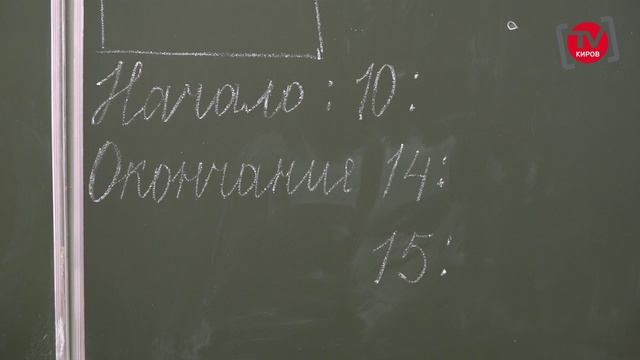 TV
КИРОВ
Начало : 10 :
Окончание 14 :
15 :